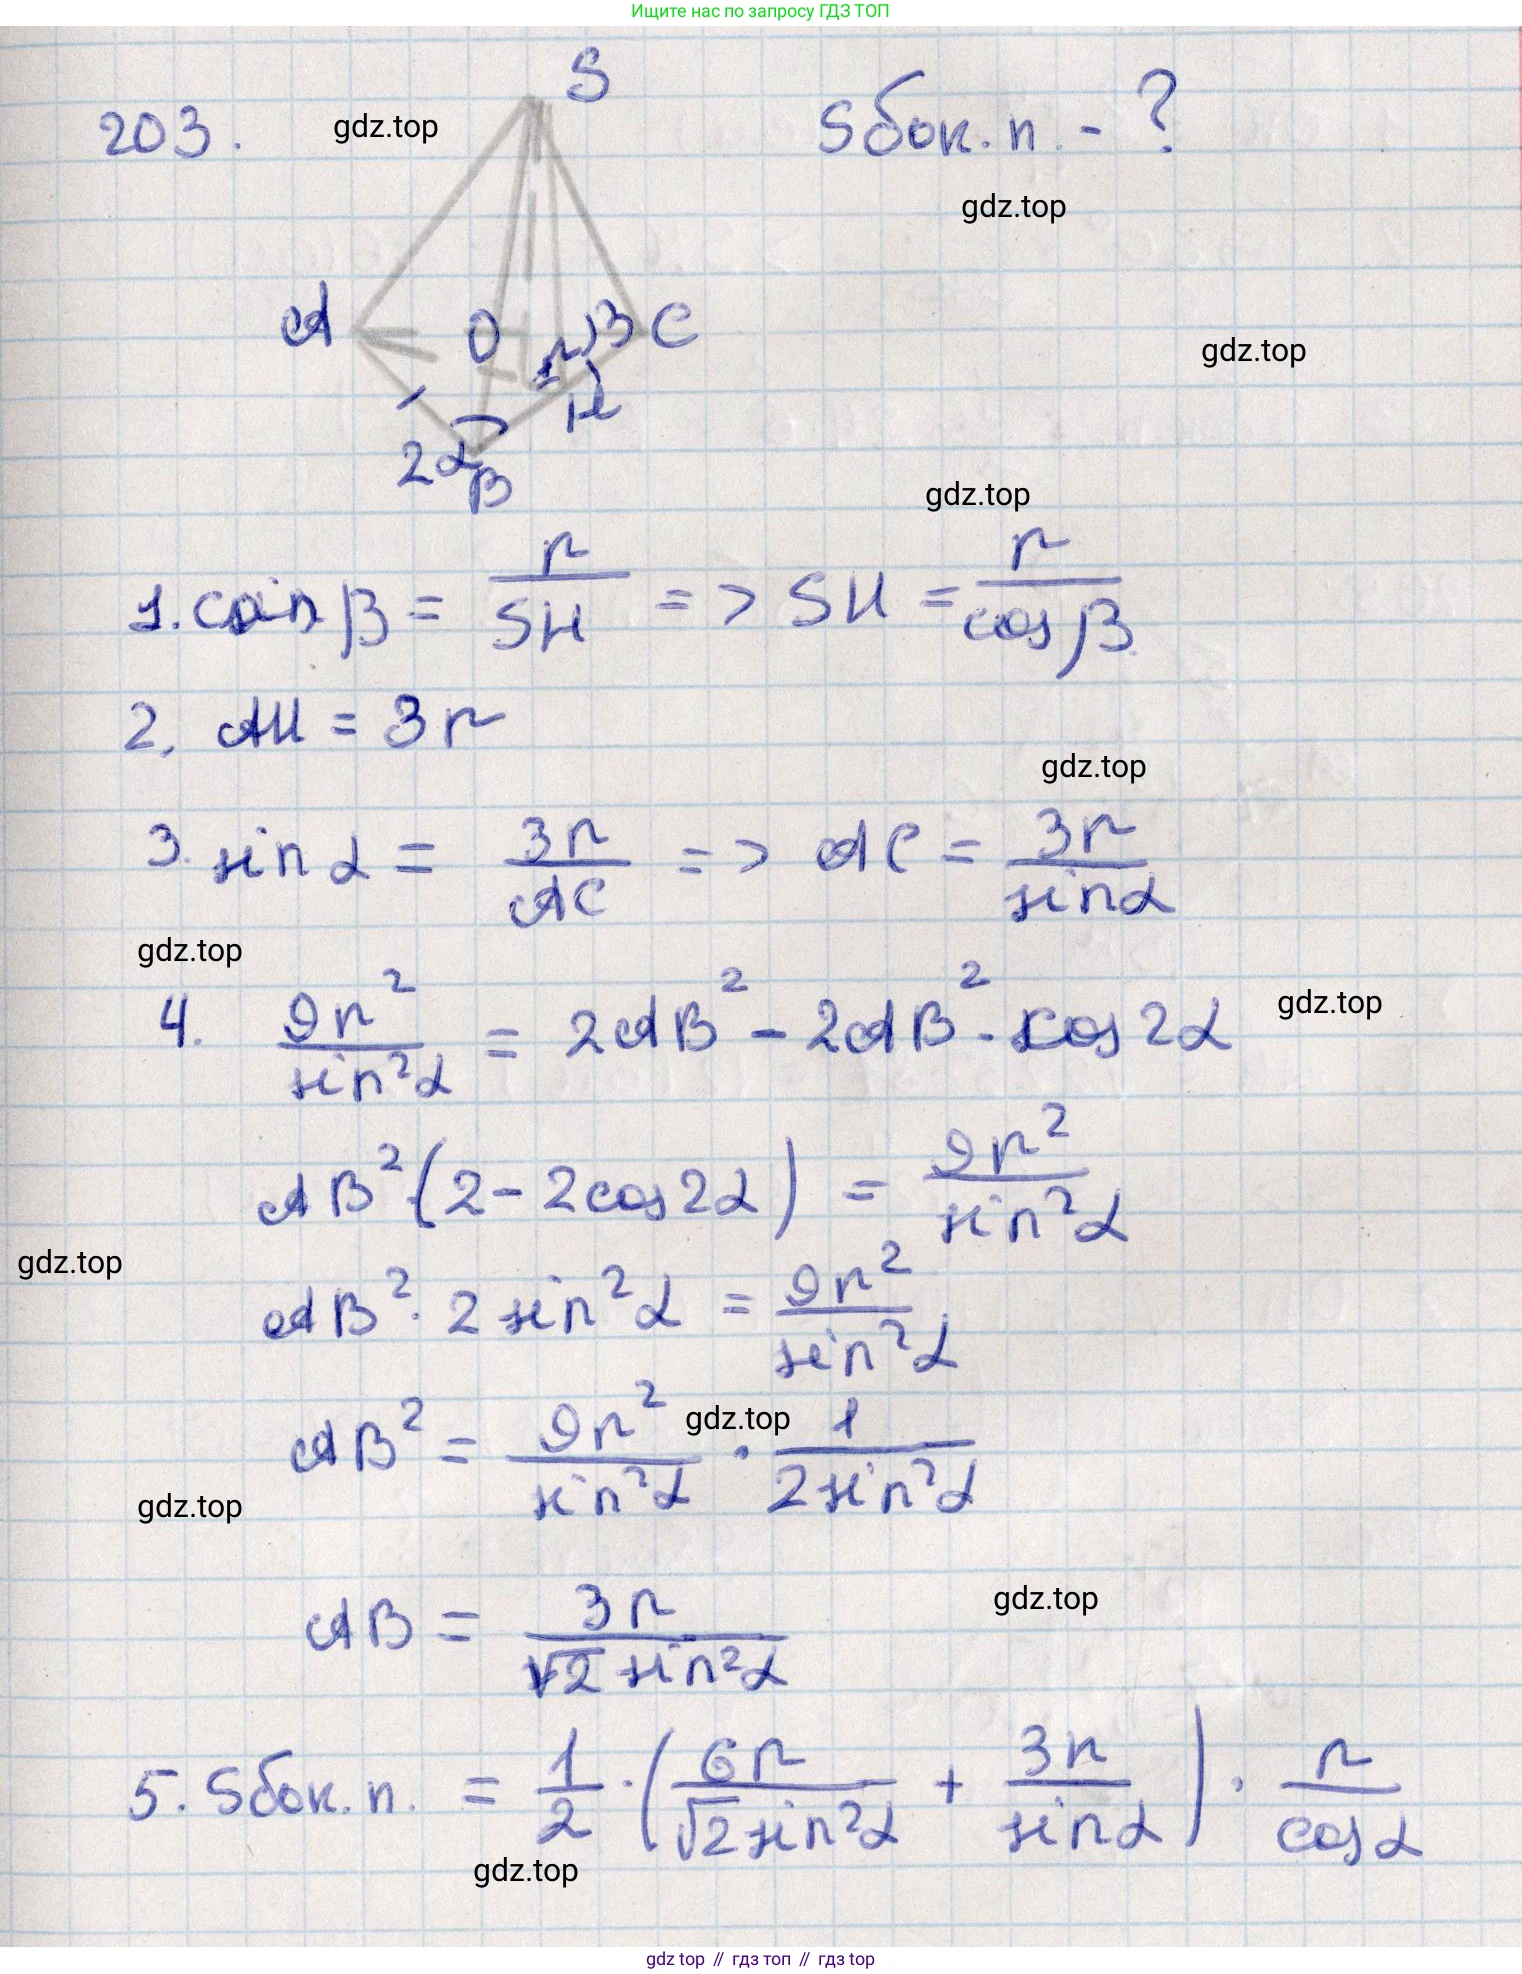 Ищите нас по запросу ГДЗ ТОП
S
203. gdz.top Sбок.п. - ?
gdz.top
A O r β C
gdz.top
H
2α
B
gdz.top
1. cosin β = r/SH => SH = r/cos β
2. AH = 3r
gdz.top
3. sin α = 3r/AC => AC = 3r/sin α
gdz.top
4. 9r²/sin²α = 2AB² - 2AB² · cos 2α
gdz.top
AB² · (2 - 2cos 2α) = 9r²/sin²α
gdz.top
AB² · 2 sin²α = 9r²/sin²α
AB² = 9r²/sin²α · 1/2sin²α
gdz.top
gdz.top
AB = 3r/√2 sin²α
gdz.top
5. Sбок.п. = 1/2 · (6r/√2 sin²α + 3r/sin α) · r/cos α
gdz.top
gdz top // гдз топ // гдз top